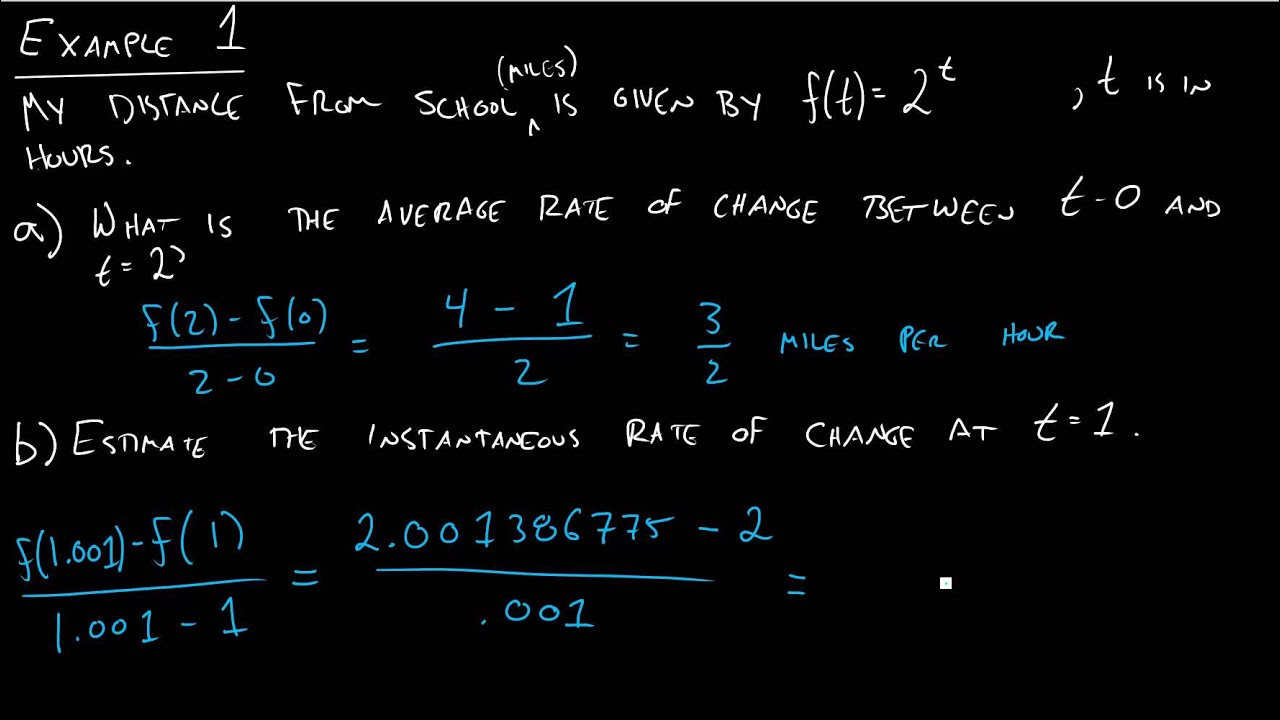 EXAMPLE 1
MY DISTANCE FROM SCHOOL ^ (MILES) IS GIVEN BY f(t) = 2^t , t IS IN
HOURS.
a) WHAT IS THE AVERAGE RATE OF CHANGE BETWEEN t - 0 AND
t = 2?
f(2) - f(0) / 2 - 0 = 4 - 1 / 2 = 3 / 2 MILES PER HOUR
b) ESTIMATE THE INSTANTANEOUS RATE OF CHANGE AT t = 1.
f(1.001) - f(1) / 1.001 - 1 = 2.001386775 - 2 / .001 =